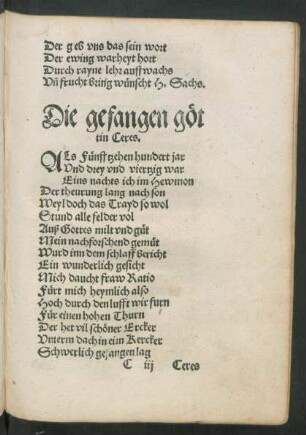 Der geb vns das sein wort
Der ewing warheyt hort
Durch rayne lehr auff wachs
Vñ frucht bring wünscht H. Sachs.
Die gefangen göt
tin Ceres.
ALs Fünfftzehen hundert jar
Vnd drey vnd viertzig war
Eins nachts ich im Hewmon
Der theurung lang nach son
Weyl doch das Trayd so wol
Stund alle felder vol
Auß Gottes milt vnd güt
Mein nachforschend gemüt
Wurd inn dem schlaff bericht
Ein wunderlich gesicht
Mich daucht fraw Ratio
Fürt mich heymlich also
Hoch durch den lufft wir furn
Für einen hohen Thurn
Der het vil schöner Ercker
Vnterm dach in eim Kercker
Schwerlich gefangen lag
C iij Ceres